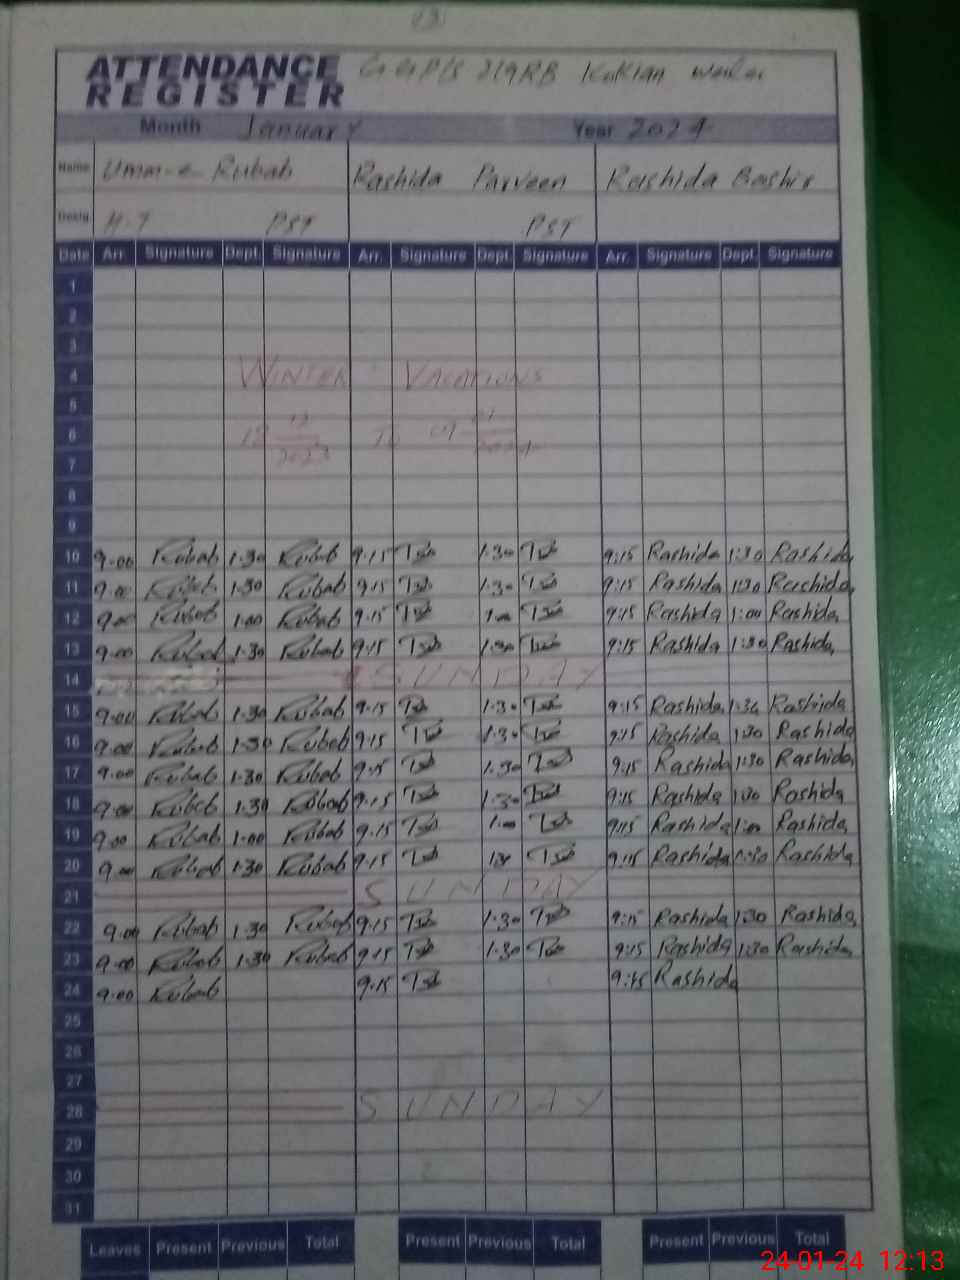 13
ATTENDANCE REGISTER GGP/S 219RB Kuklan
Month January Year 2024
Name Umm-e-Rubab Rashida Parveen Rashida Bashir
Desig. H-T PST PST
Date Arr. Signature Dept. Signature Arr. Signature Dept. Signature Arr. Signature Dept. Signature
1
2
3
4 WINTER VACATIONS
5
6 18 12 2023 To 09 01 2024
7
8
9
10 9:00 Rubab 1:30 Rubab 9:15 1:30 9:15 Rashida 1:30 Rashida
11 9:00 Rubab 1:30 Rubab 9:15 1:30 9:15 Rashida 1:30 Rashida
12 9:00 Rubab 1:00 Rubab 9:15 1:00 9:15 Rashida 1:00 Rashida
13 9:00 Rubab 1:30 Rubab 9:15 1:30 9:15 Rashida 1:30 Rashida
14 SUNDAY
15 9:00 Rubab 1:30 Rubab 9:15 1:30 9:15 Rashida 1:30 Rashida
16 9:00 Rubab 1:30 Rubab 9:15 1:30 9:15 Rashida 1:30 Rashida
17 9:00 Rubab 1:30 Rubab 9:15 1:30 9:15 Rashida 1:30 Rashida
18 9:00 Rubab 1:30 Rubab 9:15 1:30 9:15 Rashida 1:30 Rashida
19 9:00 Rubab 1:00 Rubab 9:15 1:00 9:15 Rashida 1:00 Rashida
20 9:00 Rubab 1:30 Rubab 9:15 1:30 9:15 Rashida 1:30 Rashida
21 SUNDAY
22 9:00 Rubab 1:30 Rubab 9:15 1:30 9:15 Rashida 1:30 Rashida
23 9:00 Rubab 1:30 Rubab 9:15 1:30 9:15 Rashida 1:30 Rashida
24 9:00 Rubab 9:15 9:15 Rashida
25
26
27
28 SUNDAY
29
30
31
Leaves Present Previous Total Present Previous Total Present Previous Total
24-01-24 12:13